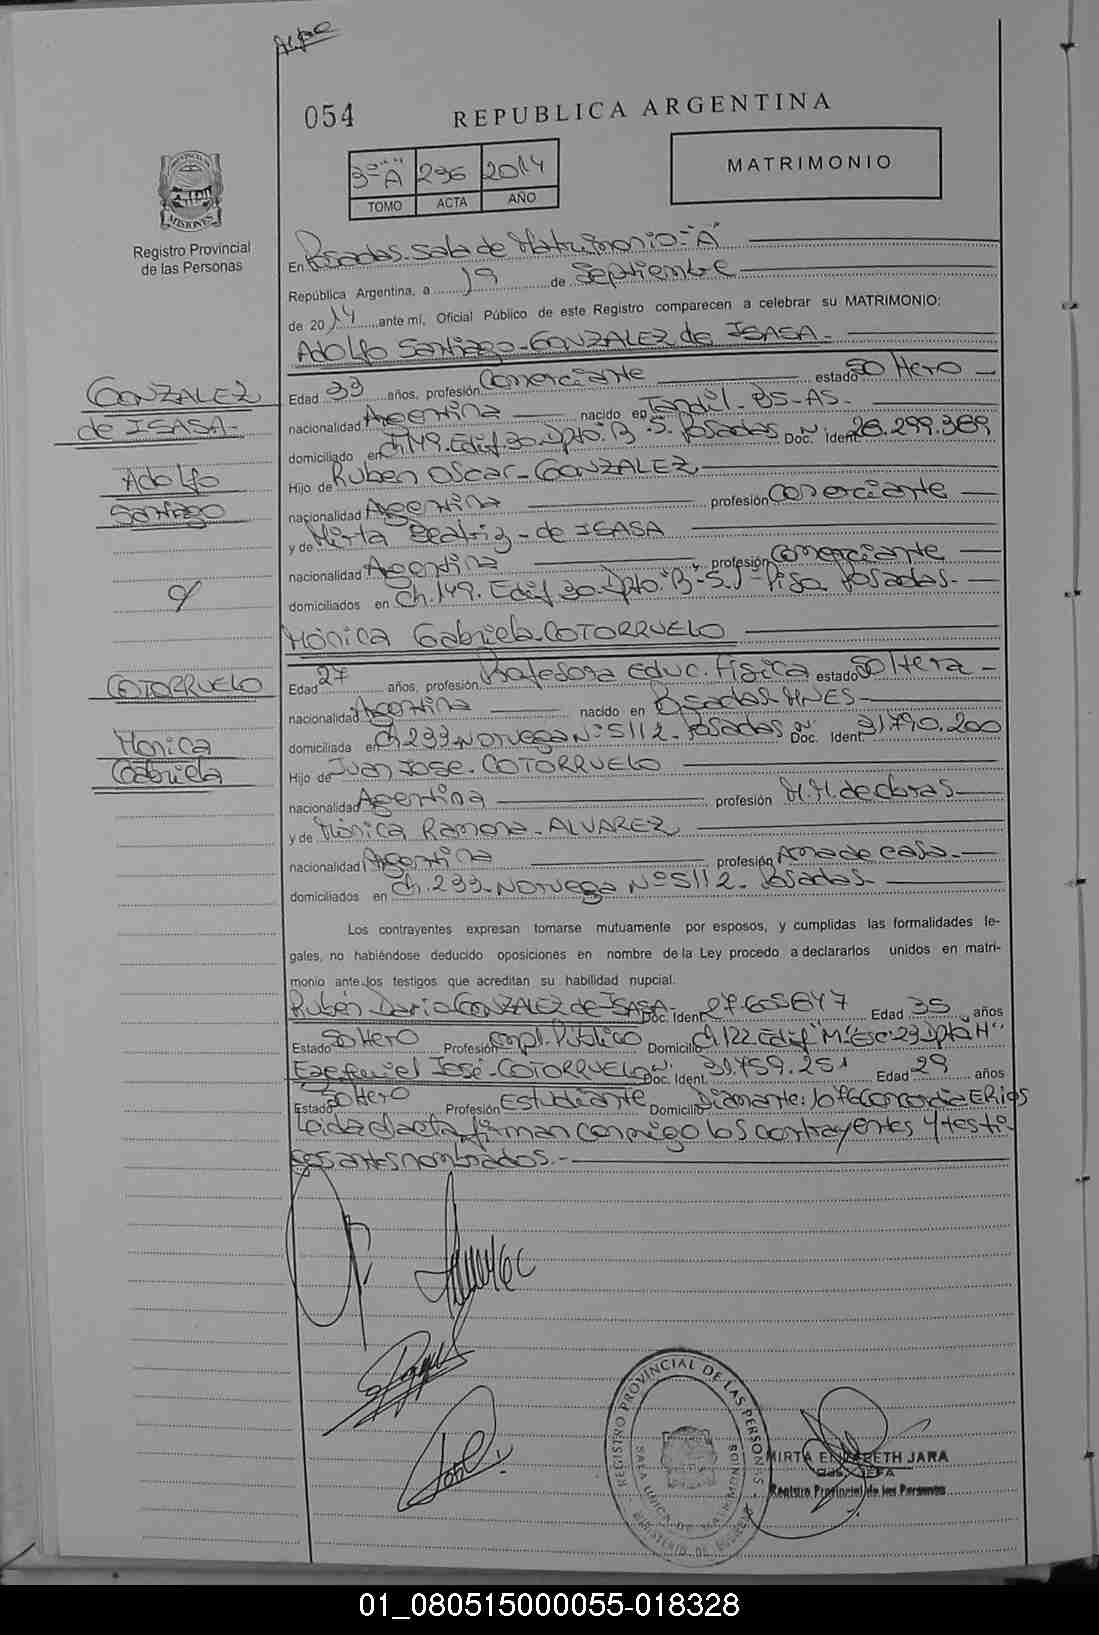 054
REPUBLICA ARGENTINA
MATRIMONIO
3º A 296 2014
TOMO ACTA AÑO
MISIONES
Registro Provincial
de las Personas
En Posadas. Sala de Matrimonio-"A"
República Argentina, a 19 de Septiembre
de 2014 ante mí, Oficial Público de este Registro comparecen a celebrar su MATRIMONIO:
Adolfo Santiago-GONZALEZ de ISASA-
GONZALEZ
de ISASA-
Adolfo
Santiago
Edad 33 años, profesión Comerciante estado Soltero
nacionalidad Argentina nacido en Tandil-BS-AS-
domiciliado en Ch.149.Edif.30.Dpto."B"-5. Posadas Doc. Ident 28.299.389
Hijo de Ruben Oscar-GONZALEZ
nacionalidad Argentina profesión Comerciante
y de Mirta Beatriz-de ISASA
nacionalidad Argentina profesión Comerciante
domiciliados en Ch.149.Edif.30.Dpto."B"-5. Posadas-
y
Mónica Gabriela-COTORRUELO
COTORRUELO
Monica
Gabriela
Edad 27 años, profesión Profesora Educ. Física estado Soltera-
nacionalidad Argentina nacido en Posadas-MNES
domiciliada en Ch.233.Noruega Nº5112. Posadas Doc. Ident 31.790.200
Hijo de Juan José-COTORRUELO
nacionalidad Argentina profesión M.M de obras
y de Mónica Ramona-ALVAREZ
nacionalidad Argentina profesión Ama de casa-
domiciliados en Ch.233-Noruega Nº5112-Posadas-
Los contrayentes expresan tomarse mutuamente por esposos, y cumplidas las formalidades le-
gales, no habiéndose deducido oposiciones en nombre de la Ley procedo a declararlos unidos en matri-
monio ante los testigos que acreditan su habilidad nupcial.
Rubén Dario GONZALEZ de ISASA- Doc. Ident. 27.605847 Edad 35 años
Estado Soltero Profesión Empl. Público Domicilio Ch122.Edif"M"Esc:29 Dpto"H"
Ezequiel José-COTORRUELO Doc. Ident. 31.759.251 Edad 29 años
Estado Soltero Profesión Estudiante Domicilio Diamante: Concordia E.Rios
Leida el acta firman conmigo los contrayentes y testi-
gos antes nombrados.-
REGISTRO PROVINCIAL DE LAS PERSONAS
MIRTA ELIZABETH JARA
JEFA
Registro Provincial de las Personas
01_080515000055-018328